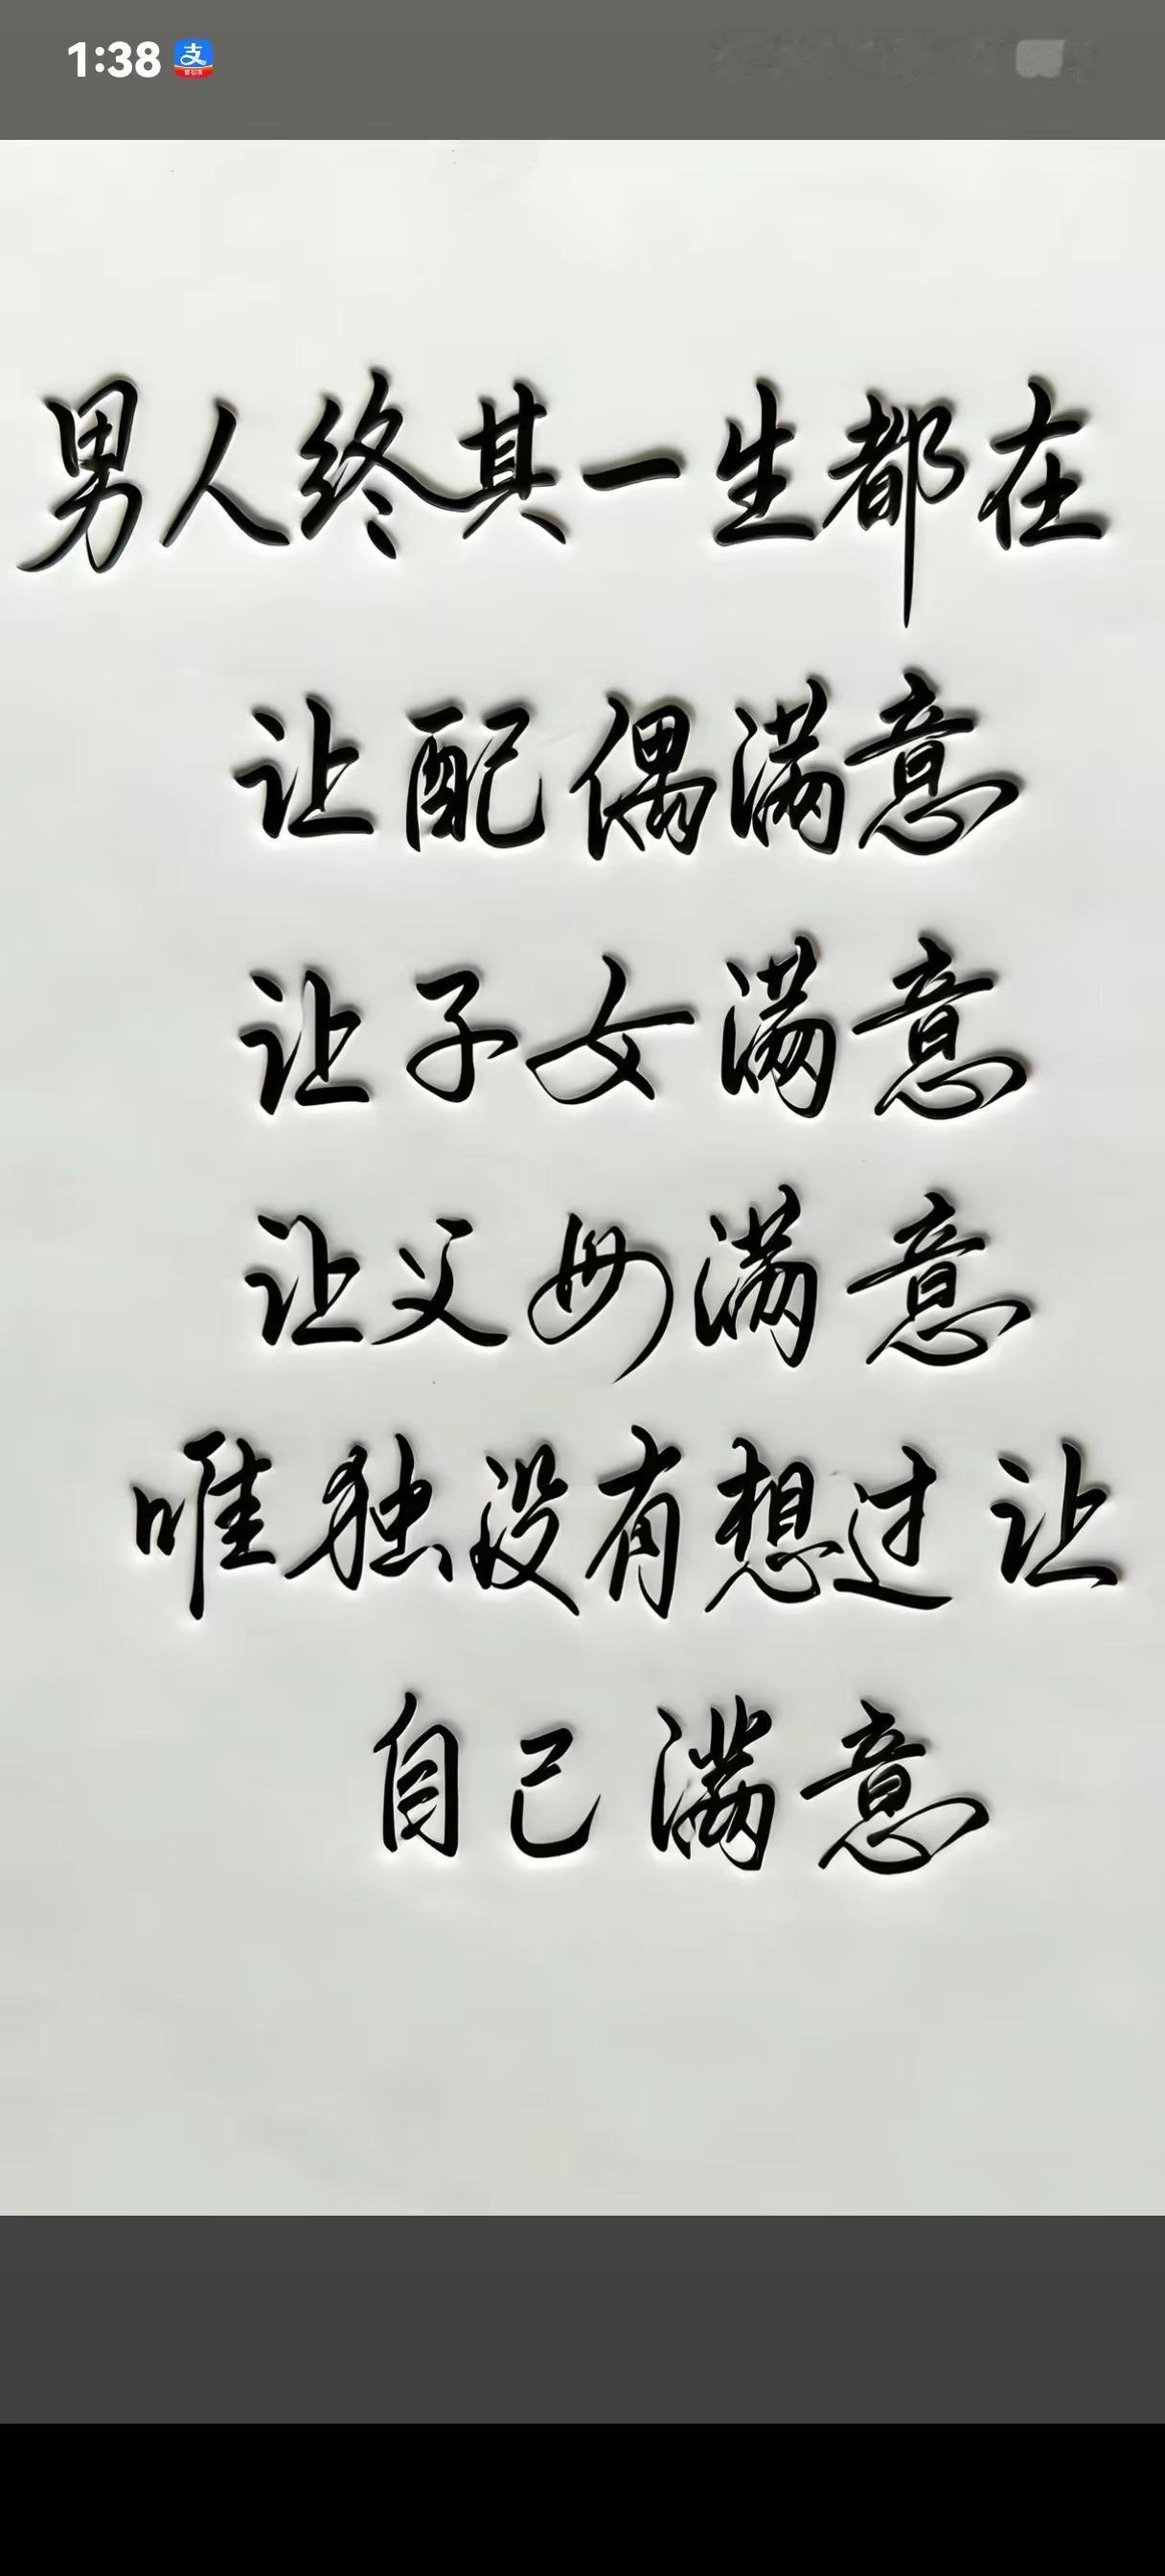 1:38
支
男人终其一生都在
让配偶满意
让子女满意
让父母满意
唯独没有想过让
自己满意